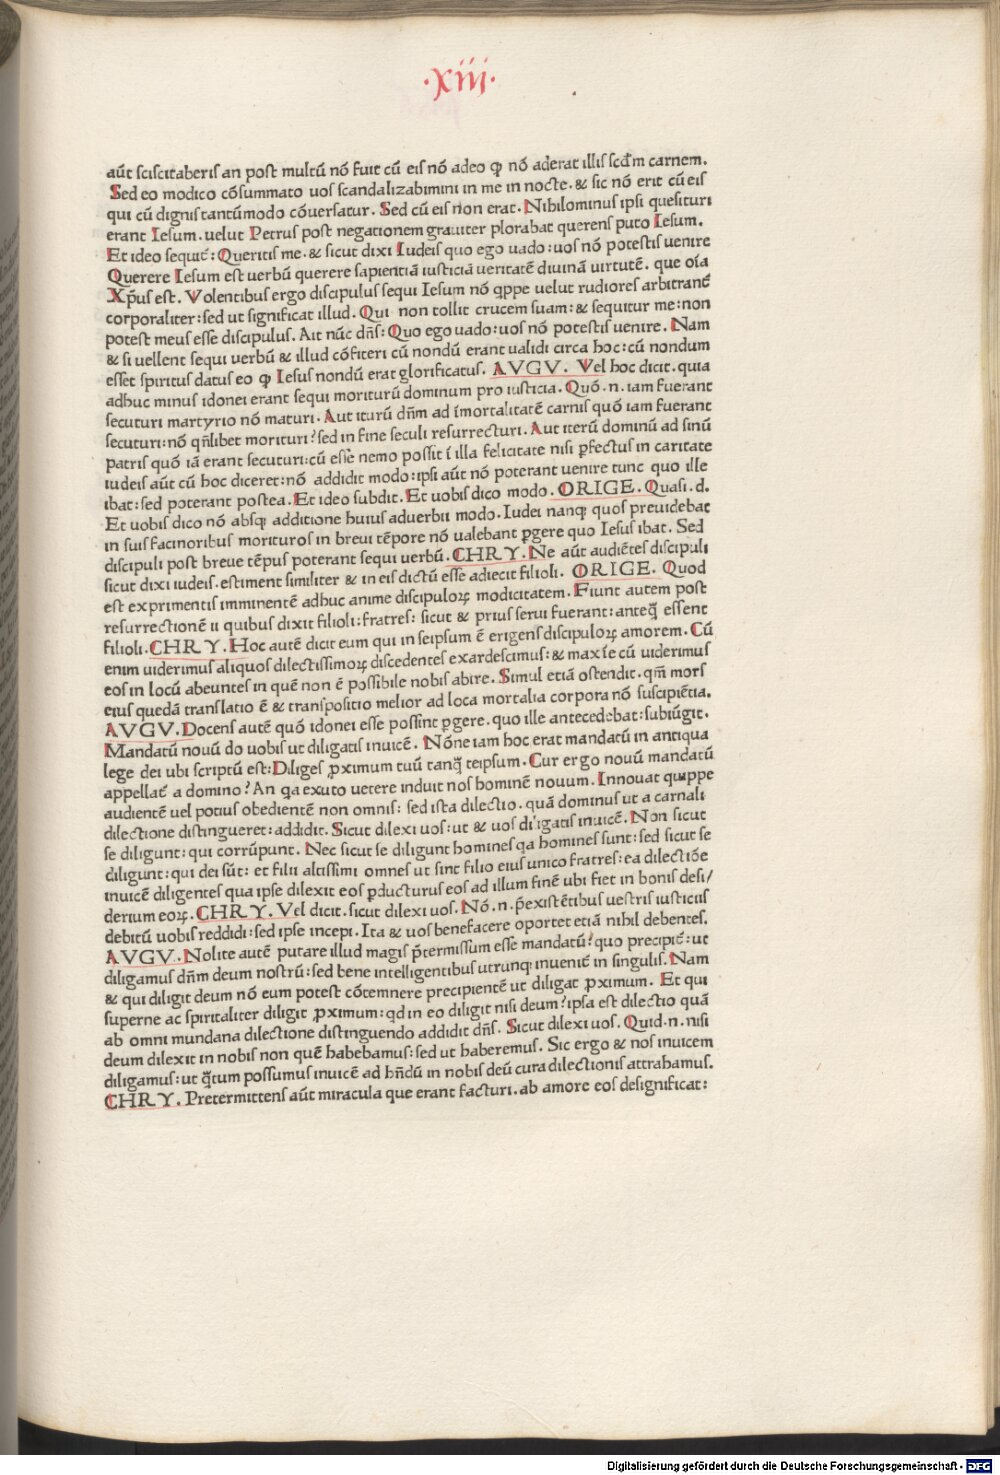 ·xiij·
aūt sciscitaberis an post multū nō fuit cū eis nō adeo ꝙ nō aderat illis scd̄m carnem.
Sed eo modico cōsummato uos scandalizabimini in me in nocte. & sic nō erit cū eis
qui cū dignis tantūmodo cōuersatur. Sed cū eis non erat. Nihilominus ipsi quesituri
erant Iesum. uelut Petrus post negationem grauiter plorabat querens puto Iesum.
Et ideo sequit̄: Queritis me. & sicut dixi Iudeis quo ego uado: uos nō potestis uenire
Querere Iesum est uerbū querere sapientiā iusticiā ueritatē diuinā uirtutē. que oīa
Xp̄us est. Volentibus ergo discipulus sequi Iesum nō qppe uelut rudiores arbitrant̄
corporaliter: sed ut significat illud. Qui non tollit crucem suam: & sequitur me: non
potest meus esse discipulus. Ait nūc dn̄s: Quo ego uado: uos nō potestis uenire. Nam
& si uellent sequi uerbū & illud cōfiteri cū nondū erant ualidi circa hoc: cū nondum
esset spiritus datus eo ꝙ Iesus nondū erat glorificatus. AVGV. Vel hoc dicit. quia
adhuc minus idonei erant sequi moriturū dominum pro iusticia. Quō. n. iam fuerant
secuturi martyrio nō maturi. Aut iturū dn̄m ad īmortalitatē carnis quō iam fuerant
secuturi: nō qn̄libet morituri? sed in fine seculi resurrecturi. Aut iterū dominū ad sinū
patris quō iā erant secuturi: cū esse nemo possit ī illa felicitate nisi ꝑfectus in caritate
iudeis aūt cū hoc diceret: nō addidit modo: ipsi aūt nō poterant uenire tunc quo ille
ibat: sed poterant postea. Et ideo subdit. Et uobis dico modo. ORIGE. Quasi. d.
Et uobis dico nō absq; additione huius aduerbii modo. Iudei nanq; quos preuidebat
in suis facinoribus morituros in breui tēpore nō ualebant ꝑgere quo Iesus ibat. Sed
discipuli post breue tēpus poterant sequi uerbū. CHRY. Ne aūt audiētes discipuli
sicut dixi iudeis. estiment similiter & in eis dictū esse adiecit filioli. ORIGE. Quod
est exprimentis imminentē adhuc anime discipuloꝝ modicitatem. Fiunt autem post
resurrectionē ii quibus dixit filioli: fratres: sicut & prius serui fuerant: anteq̄ essent
filioli. CHRY. Hoc autē dicit eum qui in seipsum ē erigens discipuloꝝ amorem. Cū
enim uiderimus aliquos dilectissimoꝝ discedentes exardescimus: & maxīe cū uiderimus
eos in locū abeuntes in quē non ē possibile nobis abire. Simul etiā ostendit. qm̄ mors
eius quedā translatio ē & transpositio melior ad loca mortalia corpora nō suscipiētia.
AVGV. Docens autē quō idonei esse possint ꝑgere. quo ille antecedebat: subiūgit.
Mandatū nouū do uobis ut diligatis inuicē. Nōne iam hoc erat mandatū in antiqua
lege dei ubi scriptū est: Diliges ꝓximum tuū tanq̄ teipsum. Cur ergo nouū mandatū
appellat̄ a domino? An qa exuto uetere induit nos hominē nouum. Innouat quippe
audientē uel potius obedientē non omnis: sed ista dilectio. quā dominus ut a carnali
dilectione distingueret: addidit. Sicut dilexi uos: ut & uos diligatis inuicē. Non sicut
se diligunt: qui corrūpunt. Nec sicut se diligunt homines qa homines sunt: sed sicut se
diligunt: qui dei sūt: et filii altissimi omnes ut sint filio eius unico fratres: ea dilectiōe
inuicē diligentes qua ipse dilexit eos ꝑducturus eos ad illum finē ubi fiet in bonis desi/
derium eoꝝ. CHRY. Vel dicit. sicut dilexi uos. Nō. n. p̄existētibus uestris iusticiis
debitū uobis reddidi: sed ipse incepi. Ita & uos benefacere oportet etiā nihil debentes.
AVGV. Nolite autē putare illud magis p̄termissum esse mandatū? quo precipit̄: ut
diligamus dn̄m deum nostrū: sed bene intelligentibus utrunq; inuenit̄ in singulis. Nam
& qui diligit deum nō eum potest cōtemnere precipientē ut diligat ꝓximum. Et qui
superne ac spiritaliter diligit ꝓximum: qd in eo diligit nisi deum? ipsa est dilectio quā
ab omni mundana dilectione distinguendo addidit dn̄s. Sicut dilexi uos. Quid. n. nisi
deum dilexit in nobis non quē habebamus: sed ut haberemus. Sic ergo & nos inuicem
diligamus: ut q̄tum possumus inuicē ad hn̄dū in nobis deū cura dilectionis attrahamus.
CHRY. Pretermittens aūt miracula que erant facturi. ab amore eos designificat:
Digitalisierung gefördert durch die Deutsche Forschungsgemeinschaft - DFG